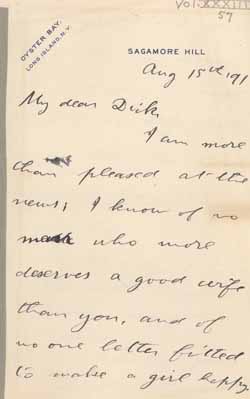 Vol. XXXIII
57
OYSTER BAY,
LONG ISLAND, N.Y.
SAGAMORE HILL
Aug 15th 191
My dear Dick,
I am more
than pleased at the
news; I know of no
who more
deserves a good wife
than you, and of
no one better fitted
to make a girl happy.